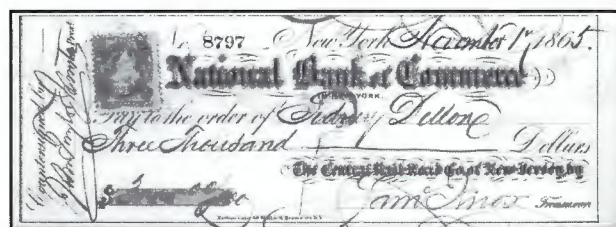 No. 8797 New York November 17 1865.
National Bank of Commerce
NEW YORK.
Pay to the order of Sidney Dillon
Three Thousand Dollars
The Central Rail Road Co. of New Jersey, by
Treasurer
Countersigned by